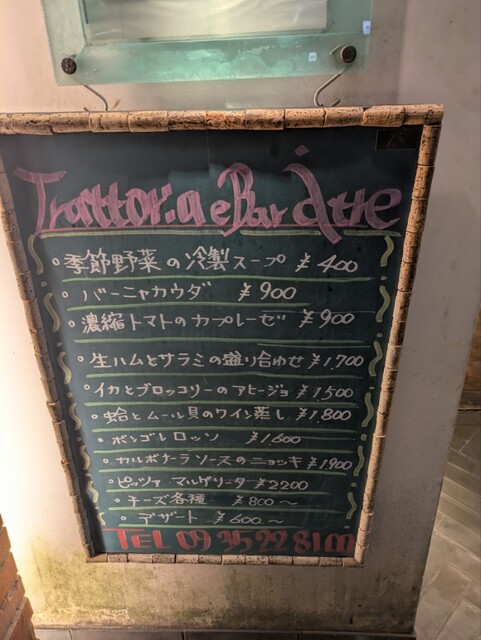 Trattoria e Bar Due
・季節野菜の冷製スープ ¥400
・バーニャカウダ ¥900
・濃縮トマトのカプレーゼ ¥900
・生ハムとサラミの盛り合わせ ¥1,700
・イカとブロッコリーのアヒージョ ¥1,500
・蛤とムール貝のワイン蒸し ¥1,800
・ボンゴレロッソ ¥1,600
・カルボナーラソースのニョッキ ¥1900
・ピッツァ マルゲリータ ¥2200
・チーズ各種 ¥800〜
・デザート ¥600〜
TEL 09 3522 8100